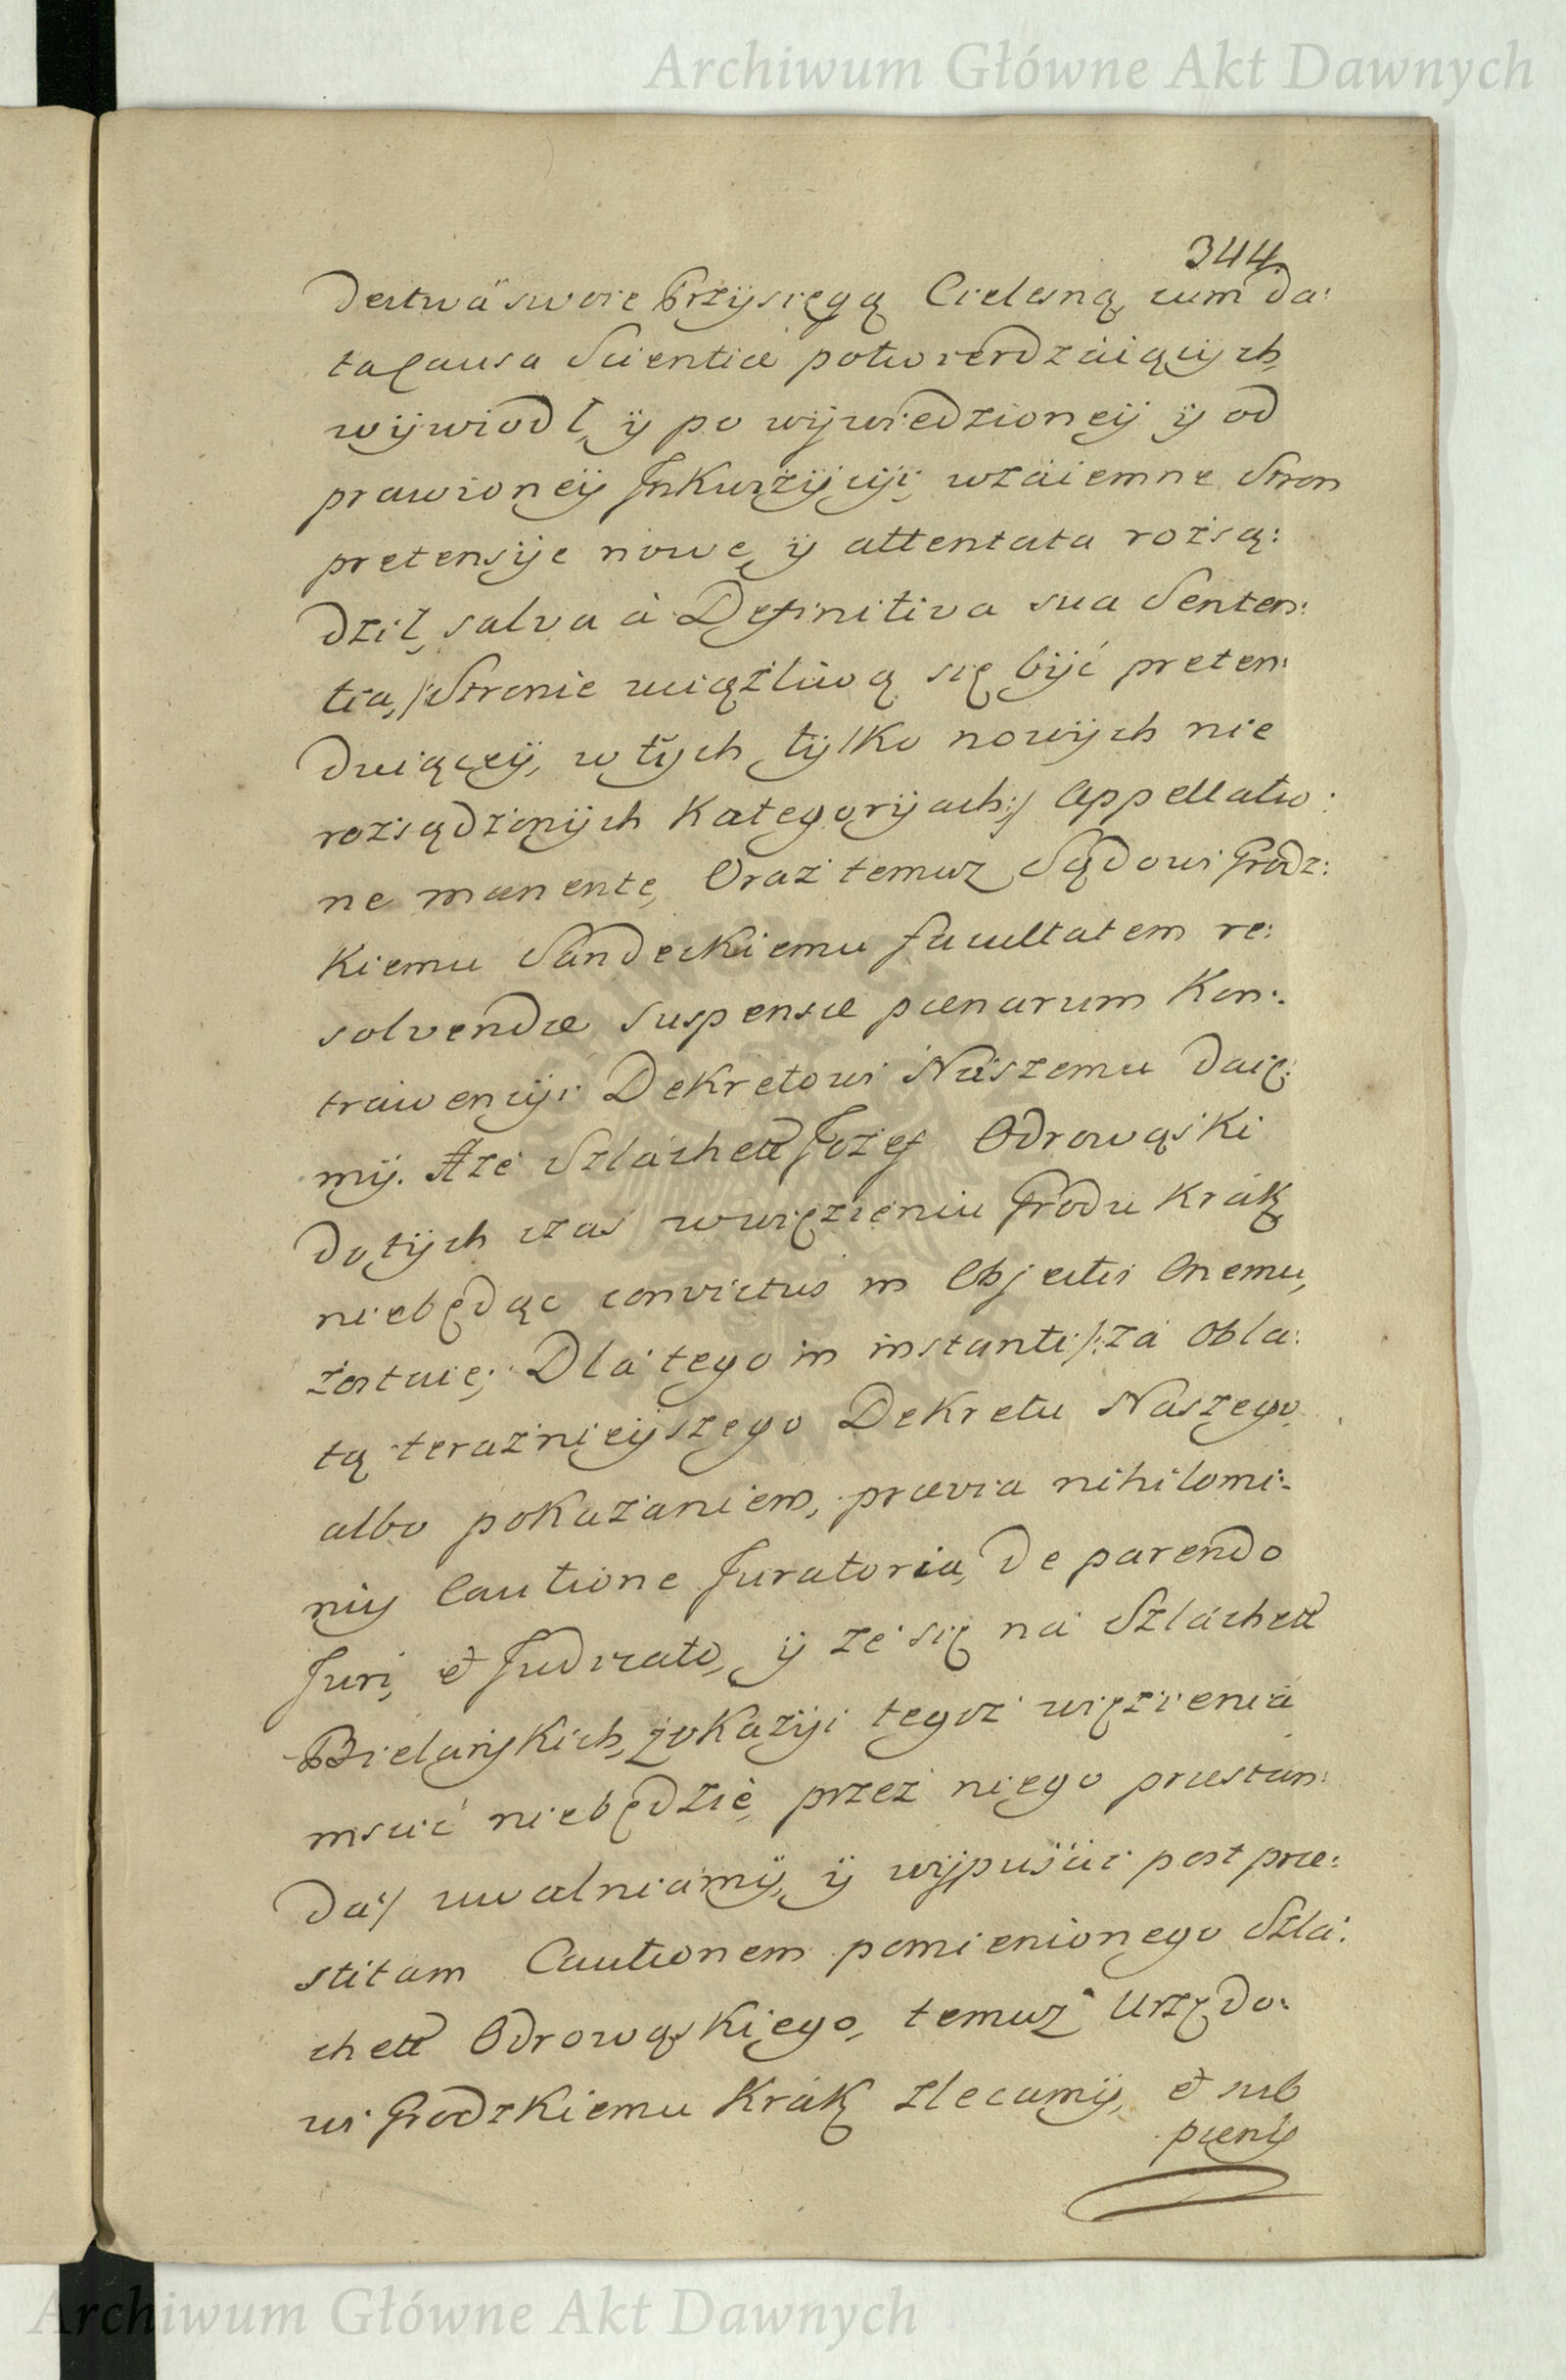 Archiwum Główne Akt Dawnych
344.
dectwa swoie Przysięgą Cielesną, cum da:
ta causa Scientiæ potwierdzaiących,
wÿwiodł, ÿ po wÿwiedzioneÿ ÿ od
prawioneÿ Inkwizÿcÿi, wzaiemne Stron
pretensÿe nowe, ÿ attentata rozsą:
dził, salva à Definitiva sua Senten:
tia, /:Stronie uciążliwą się bÿć preten:
duiąceÿ, w tÿch tÿlko nowÿch nie
rozsądzonÿch Kategorÿach:/ Appellatio:
ne manente, Oraz temuz Sądowi Grodz:
Kiemu Sandeckiemu facultatem re:
solvendæ suspensæ pœnarum Kon:
trawencÿi Dekretowi Naszemu daię:
mÿ. A że Szlachett Jozef Odrowąski
do tÿch czas w więzieniu Grodu Krák
niebędąc convictus in Objectis Onemu,
zostaie; Dla tego in instanti /:za obla:
tą teraznieÿszego Dekretu Naszego
albo pokazaniem, prævia nihilomi:
nus Cautione Juratoria, de parendo
Juri, et Judicato, ÿ ze się na Szlachett
Bielańskich, z okazÿi tegoz więzienia
mscić niebędzie, przez niego præstan:
da:/ uwalniamÿ, ÿ wÿpuścić post præ:
stitam Cautionem pomienionego Szla:
chett Odrowąskiego, temuz Urzędo:
wi Grodzkiemu Krák zlecamÿ, et sub
pœnis
Archiwum Główne Akt Dawnych